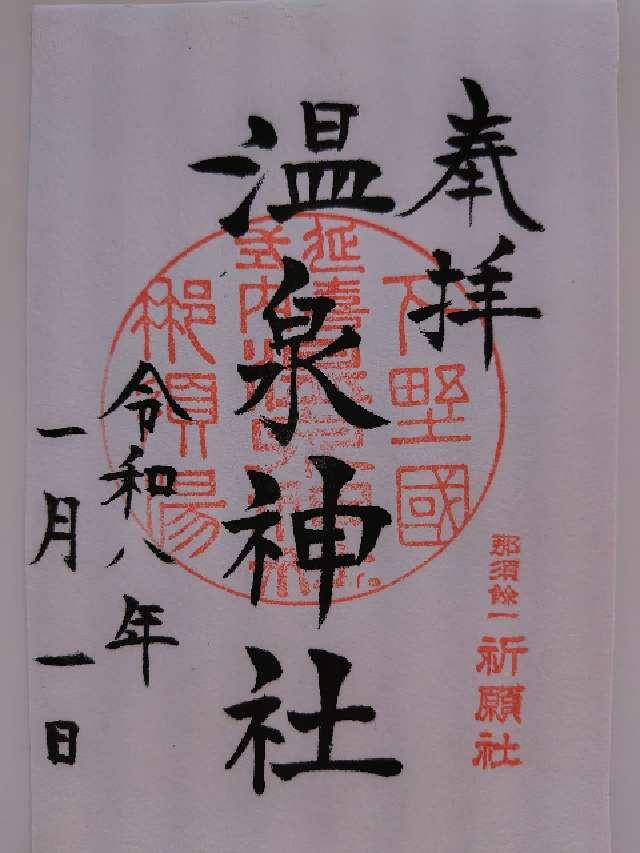 奉拝
下野國
那須餘一祈願社
温泉神社
延喜
式内
那須湯
令和八年
一月一日